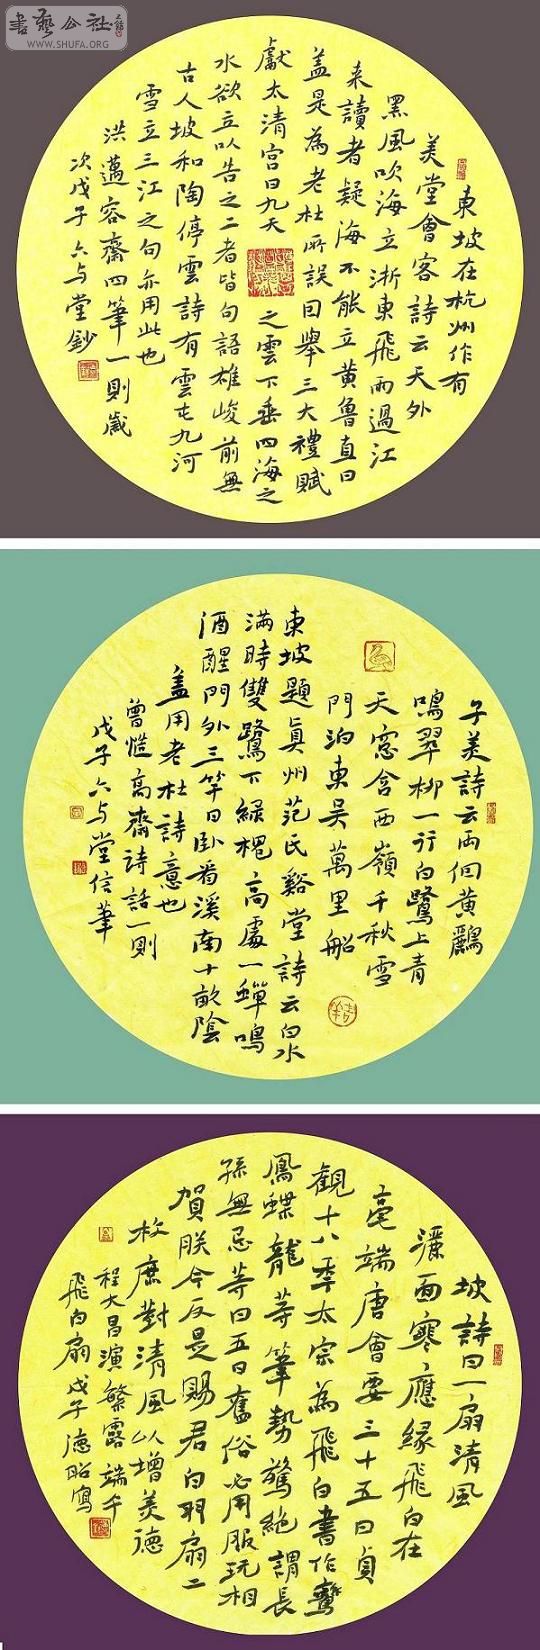 書藝公社
WWW.SHUFA.ORG
東坡在杭州作有
美堂會客詩云天外
黑風吹海立浙東飛雨過江
来讀者疑海不能立黄魯直曰
盖是為老杜所誤因舉三大禮賦
獻太清宮曰九天之雲下垂四海之
水欲立以告之二者皆句語雄峻前無
古人坡和陶停雲詩有雲屯九河
雪立三江之句亦用此也
洪邁容齋四筆一則歲
次戊子六与堂鈔
子美詩云两个黄鸝
鳴翠柳一行白鷺上青
天窓含西嶺千秋雪
門泊東吴萬里船
東坡題真州范氏谿堂詩云白水
满時雙鷺下綠槐高處一蟬鳴
酒醒門外三竿日卧看溪南十畝陰
盖用老杜詩意也
曾慥高齋詩話一則
戊子六与堂信筆
坡詩曰一扇清風
灑面寒應緣飛白在
毫端唐會要三十五曰貞
觀十八季太宗為飛白書作鸞
鳳蝶龍等筆勢驚絶謂長
孫無忌等曰五日舊俗必用服玩相
賀朕今反是賜君白羽扇二
枚庶對清風以增美德
程大昌演繁露端午
飛白扇戊子德昭寫